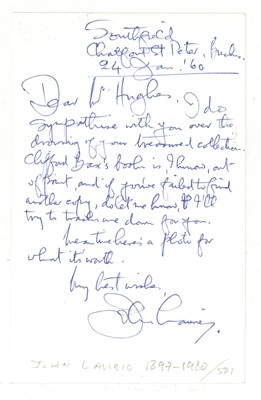 Southfield
Chalfont St Peter, Bucks.
24 Jan. '60
Dear Mr Hughes, I do
sympathise with you over the
drowning of your treasured collection.
Clifford Bax's book is, I know, out
of print, and if you've failed to find
another copy, do let me know, & I'll
try to trace one down for you.
Meantime here's a photo for
what it's worth.
My best wishes,
John Laurie
JOHN LAURIE 1897-1980/501